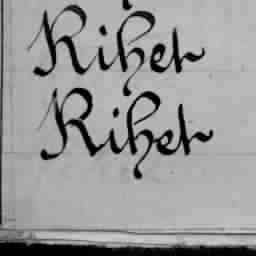 Rihet
Rihet